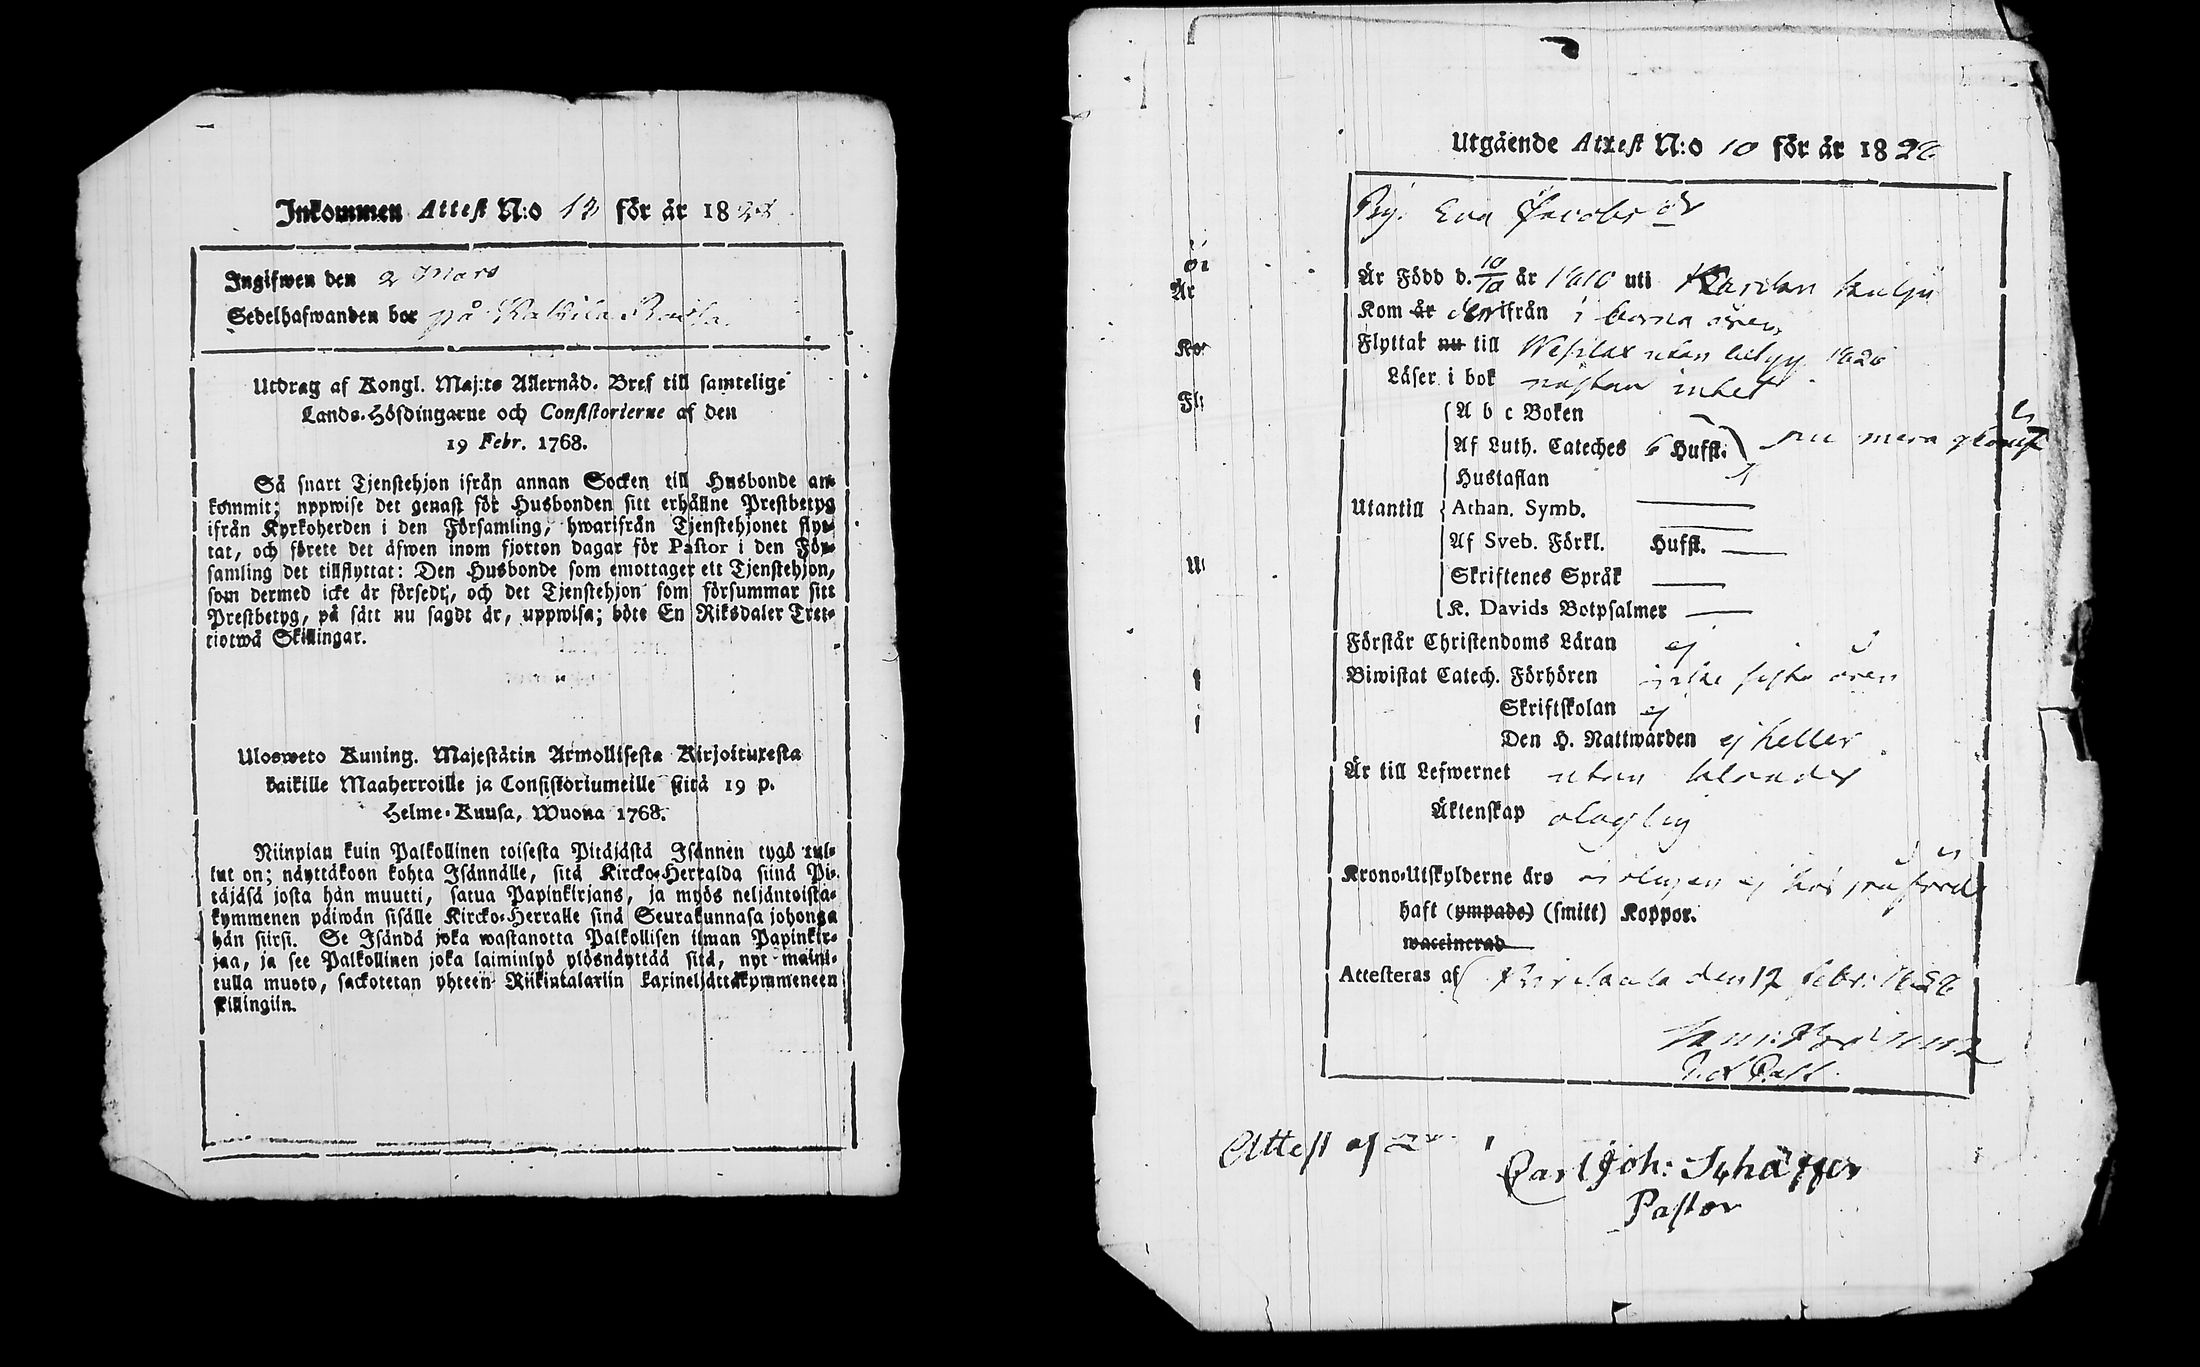 Inkommen Attest N:o 13 för år 18
Ingifwen den 2 Mars
Sedelhafwanden bor på
Utdrag af Kongl. Maj:ts Allernåd. Bref till samtelige
Lands-Höfdingarne och Consistorierne af den
19 Febr. 1768.
Så snart Tjenstehjon ifrån annan Socken till Husbonde an-
kommit; uppwise det genast för Husbonden sitt erhållne Prestbetyg
ifrån Kyrkoherden i den Församling, hwarifrån Tjenstehjonet flyt-
tat, och förete det äfwen inom fjorton dagar för Pastor i den För-
samling det tillflyttat: Den Husbonde som emottager ett Tjenstehjon,
som dermed icke är försedt, och det Tjenstehjon som försummar sitt
Prestbetyg, på sätt nu sagdt är, uppwisa; böte En Riksdaler Tret-
tiotwå Skillingar.
Ulosweto Kuning. Majestätin Armollisesta Kirjoituxesta
kaikille Maaherroille ja Consistoriumeille siitä 19 p.
Helme-Kuusa, Wuona 1768.
Niinpian kuin Palkollinen toisesta Pitäjästä Isännen tygö tul-
lut on; näyttäköön kohta Isännälle, sitä Kircko-Herralda siinä Pi-
täjäsä josta hän muutti, saatua Papinkirjans, ja myös neljäntoista-
kymmenen päiwän sisälle Kircko-Herralle sinä Seurakunnasa johonga
hän siirsi. Se Isändä joka wastanotta Palkollisen ilman Papinkir-
jaa, ja see Palkollinen joka laiminlyö ylösnäyttää sitä, nyt maini-
tulla muoto, sackotetan yhteen Riikintalariin kaxineljättäkymmeneen
killingiin.
Utgående Attest N:o 10 för år 1826
Pig. Eva Jacobs dr
Är Född d. 10/10 år 1810 uti
Kom år derifrån i barna åren
Flyttat nu till Wesilax utan betyg 1826
Läser i bok nästan intet
A b c Boken
Af Luth. Cateches 6 Hufst. nu mera
Hustaflan
Utantill Athan. Symb.
Af Sveb. Förkl. Hufst.
Skriftenes Språk
K. Davids Botpsalmer
Förstår Christendoms Läran ej
Biwistat Catech. Förhören icke sista åren
Skriftskolan ej
Den H. Nattwarden ej heller
Är till Lefwernet utan klander
Äktenskap oloflig
Krono-Utskylderne äro
haft (ympade) (smitt) Koppor.
waccinerad
Attesteras af den 17 Febr. 1826
Attest af
Carl Joh: Schäffer
Pastor